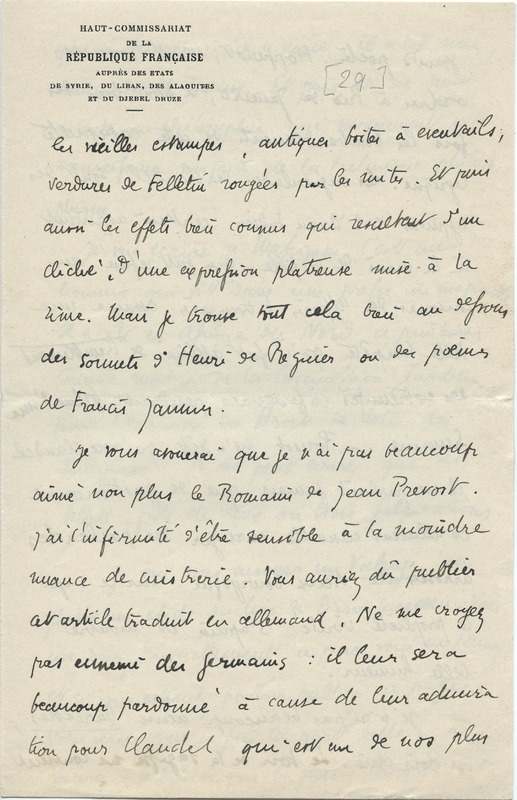 HAUT-COMMISSARIAT
DE LA
RÉPUBLIQUE FRANÇAISE
AUPRÈS DES ETATS
DE SYRIE, DU LIBAN, DES ALAOUITES
ET DU DJEBEL DRUZE
[29]
les vieilles estampes, antiques boites à éventails,
verdures de Felletin rongées par les mites. Et puis
aussi les effets bien connus qui resultent d'un
cliché, d'une expression plateuse mise à la
rime. Mais je trouve tout cela bien au dessous
des sonnets d'Henri de Regnier ou des poèmes
de Francis Jammes.
Je vous avouerai que je n'ai pas beaucoup
aimé non plus le Romains de Jean Prevost.
j'ai l'infirmité d'être sensible à la moindre
nuance de cuistrerie. Vous auriez dû publier
cet article traduit en allemand. Ne me croyez
pas ennemi des Germains : il leur sera
beaucoup pardonné à cause de leur admira
tion pour Claudel qui est un de nos plus